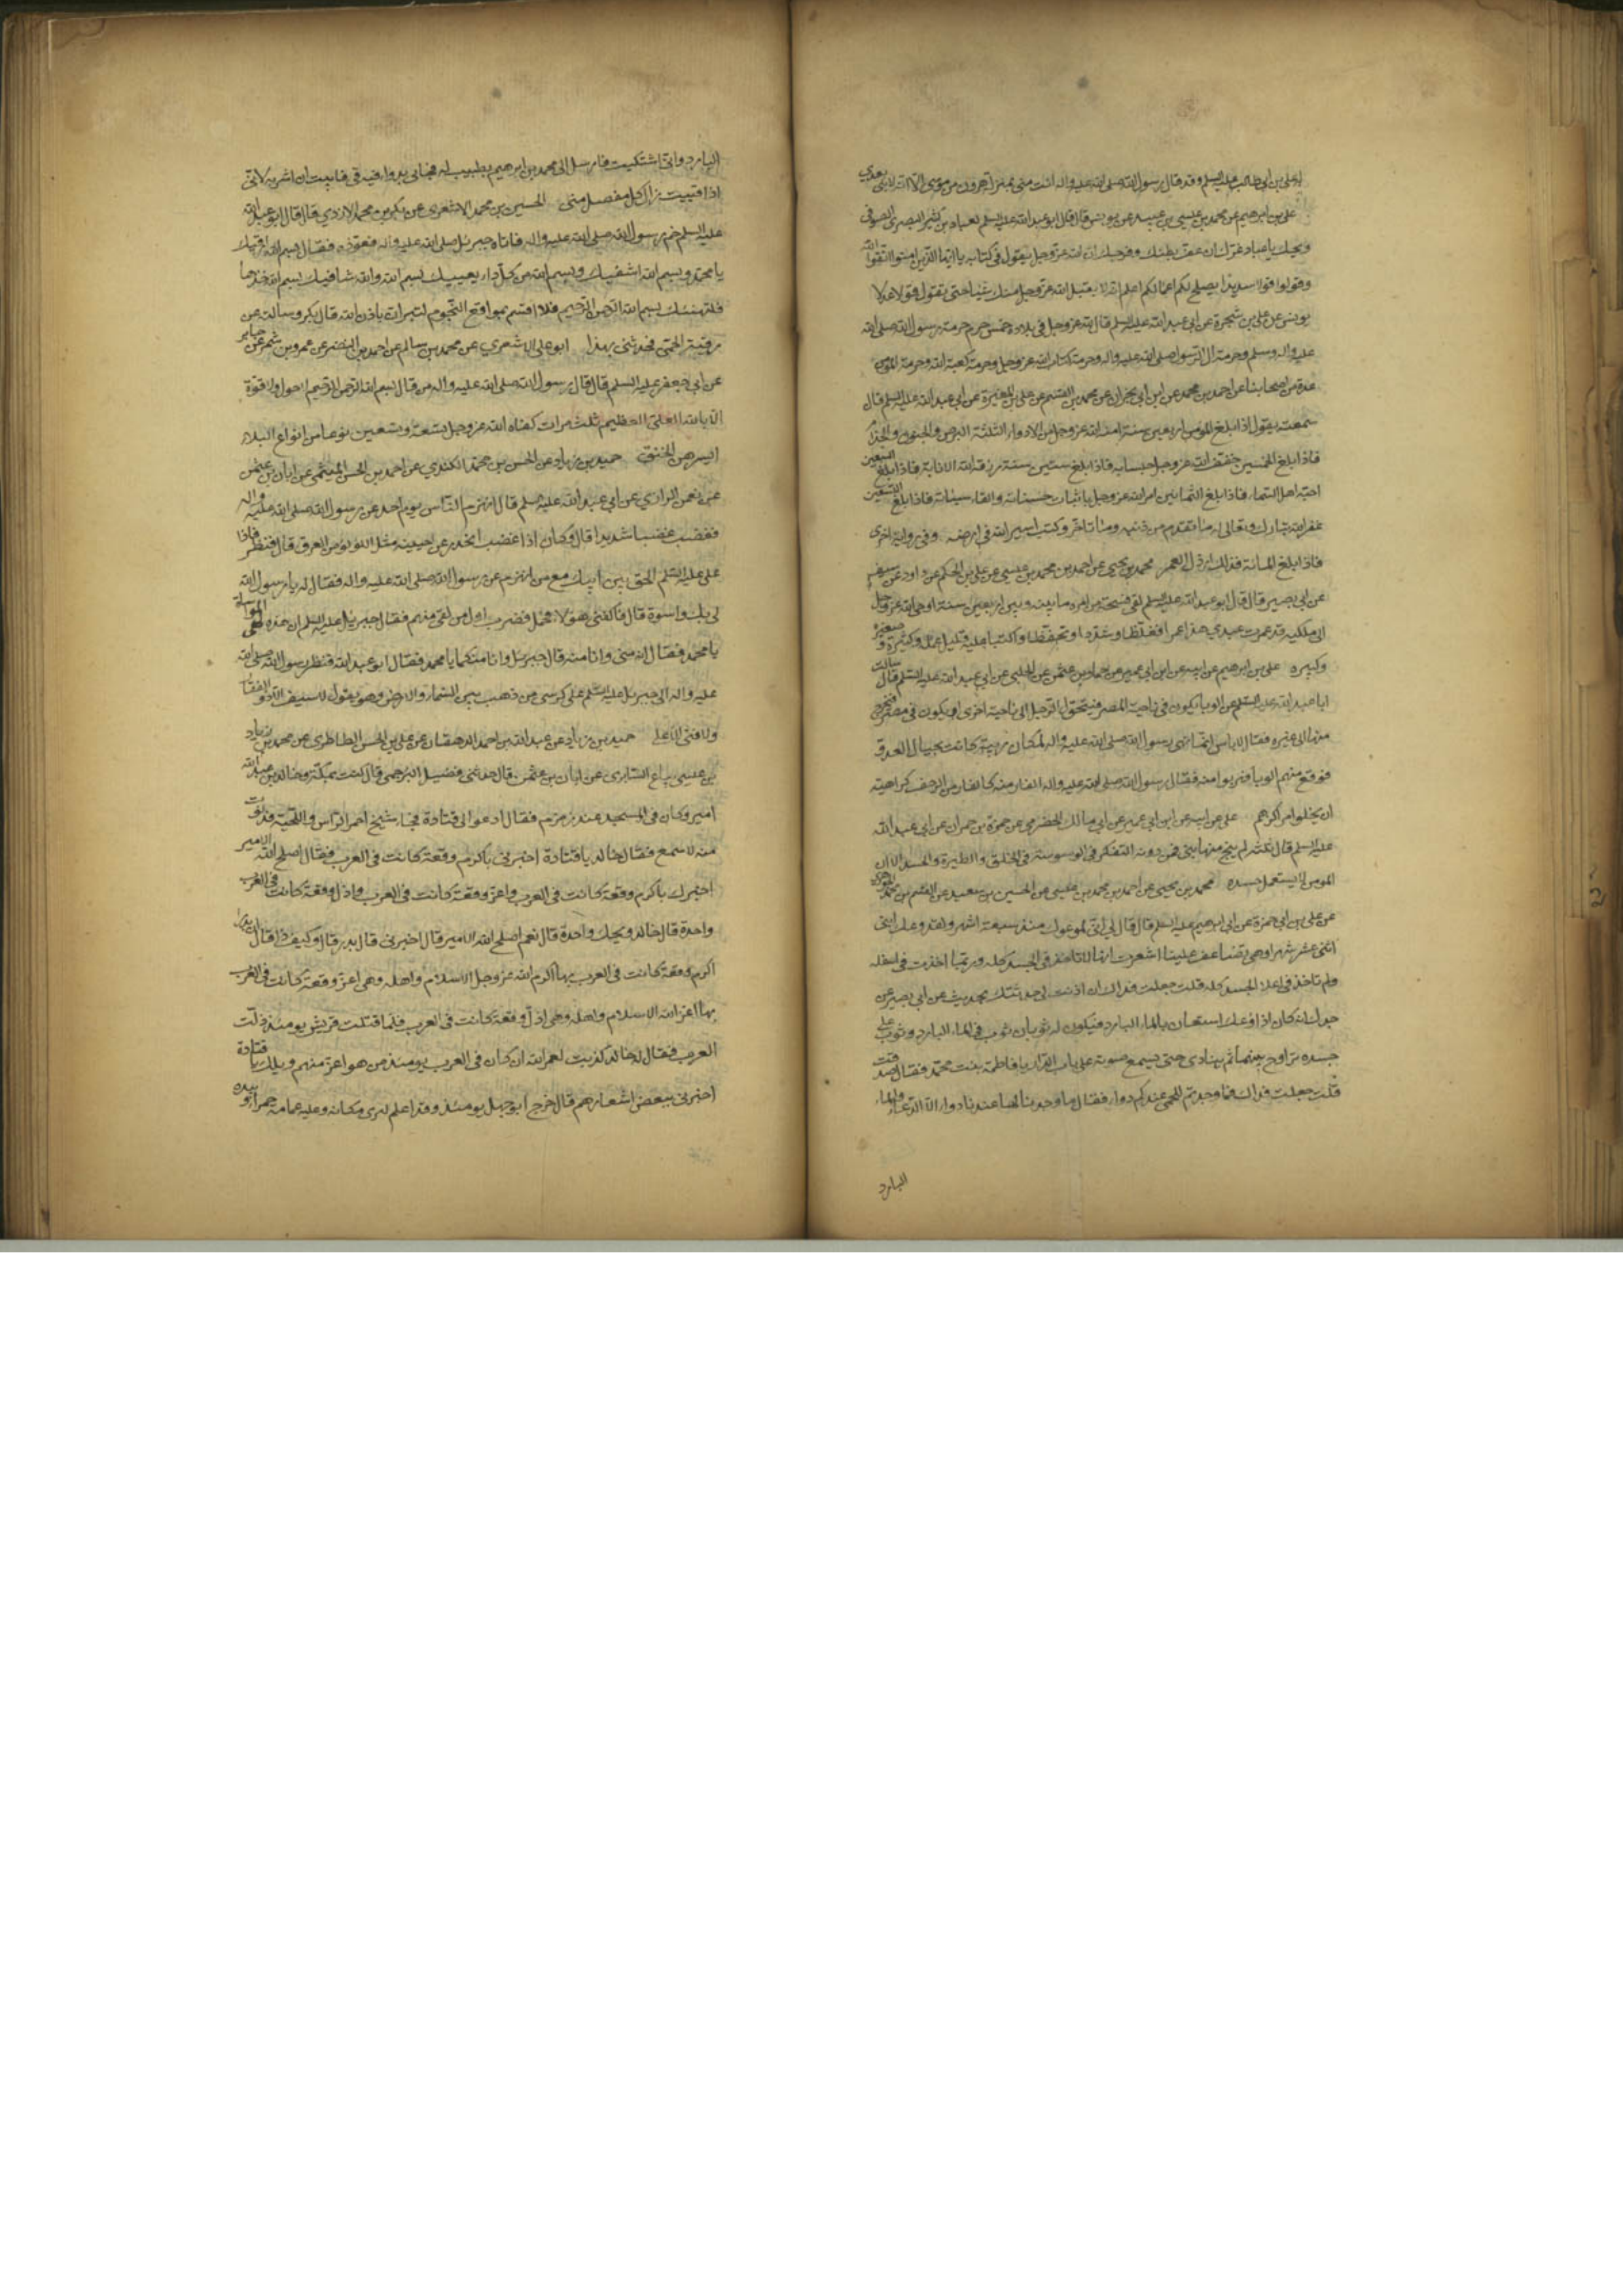 لعلي بن ابي طالب عليه السلم وقد قال رسول الله صلى الله عليه واله انت مني بمنزلة هرون من موسى الا انه لا نبي بعدي
علي بن ابرهيم عن محمد بن عيسى بن عبيد عن يونس قال قال ابو عبد الله عليه السلم لعباد بن كثير البصري الصوفي
ويحك يا عباد غرك ان عف بطنك وفرجك ان الله عز وجل يقول في كتابه يا ايها الذين امنوا اتقوا الله
وقولوا قولا سديدا يصلح لكم اعمالكم اعلم انه لا يتقبل الله عز وجل منك شيئا حتى تقول قولا عدلا
يونس عن علي بن شجرة عن ابي عبد الله عليه السلم قال لله عز وجل في بلاده خمس حرم حرمة رسول الله صلى الله
عليه واله وسلم وحرمة ال الرسول صلى الله عليه واله وحرمة كتاب الله عز وجل وحرمة كعبة الله وحرمة المؤمن
عدة من اصحابنا عن احمد بن محمد عن ابن ابي نجران عن محمد بن القسم عن علي بن المغيرة عن ابي عبد الله عليه السلم قال
سمعته يقول اذا بلغ المومن اربعين سنة امنه الله عز وجل من الادواء الثلثة البرص والجنون والجذام
فاذا بلغ الخمسين خفف الله عز وجل حسابه فاذا بلغ ستين سنة رزقه الله الانابة فاذا بلغ السبعين
احبه اهل السماء فاذا بلغ الثمانين امر الله عز وجل باثبات حسناته والقاء سيئاته فاذا بلغ التسعين
غفر الله تبارك وتعالى له ما تقدم من ذنبه وما تاخر وكتب اسير الله في ارضه وفي رواية اخرى
فاذا بلغ المائة فذلك ارذل العمر محمد بن يحيى عن احمد بن محمد بن عيسى عن علي بن الحكم عن داود عن سيف
عن ابي بصير قال قال ابو عبد الله عليه السلم لفي فسحة من امره ما بينه وبين اربعين سنة اوحى الله عز وجل
الى ملكيه قد عمرت عبدي هذا عمرا فغلظا وشددا وتحفظا واكتبا عليه قليل عمله وكثيره وصغيره
وكبيره علي بن ابرهيم عن ابيه عن ابن ابي عمير عن حماد بن عثمن عن الحلبي عن ابي عبد الله عليه السلم قال سالت
ابا عبد الله عليه السلم عن الوباء يكون في ناحية المصر فيتحول الرجل الى ناحية اخرى او يكون في مصر فيخرج
منه الى غيره فقال لا باس انما نهى رسول الله صلى الله عليه واله لمكان ربية كانت بحيال العدو
فوقع منهم الوبا فهربوا منه فقال رسول الله صلى الله عليه واله الفار منه كالفار من الزحف كراهية
ان يخلوا مراكزهم علي عن ابيه عن ابن ابي عمير عن ابي مالك الحضرمي عن حمزة بن حمران عن ابي عبد الله
عليه السلم قال ثلثة لم ينج منها نبي فمن دونه التفكر في الوسوسة في الخلق والطيرة والحسد الا ان
المومن لا يستعمل حسده محمد بن يحيى عن احمد بن محمد بن عيسى عن الحسين بن سعيد عن القسم بن محمد الجوهري
عن علي بن ابي حمزة عن ابي ابرهيم عليه السلم قال قال لي اني لموعوك منذ سبعة اشهر ولقد وعك ابني
اثني عشر شهرا وهي تضاعف علينا اشعرت انها لا تاخذ في الجسد كله وربما اخذت في اسفله
ولم تاخذ في اعلا الجسد كله قلت جعلت فداك ان اذنت لي حدثتك بحديث عن ابي بصير عن
جدك انه كان اذا وعك استعان بالماء البارد فيكون له ثوبان ثوب في الماء البارد وثوب على
جسده يراوح بينهما ثم ينادي حتى يسمع صوته على باب الدار يا فاطمة بنت محمد فقال صدقت
قلت جعلت فداك فما وجدتم للحمى عندكم دواء فقال ما وجدنا لها عندنا دواء الا الدعاء والماء
البارد
البارد واني اشتكيت فارسل الي محمد بن ابرهيم بطبيب له فجاءني بدواء فيه قي فابيت ان اشربه لاني
اذا قييت زال كل مفصل مني الحسين بن محمد الاشعري عن بكر بن محمد الازدي قال قال ابو عبد الله
عليه السلم حم رسول الله صلى الله عليه واله فاتاه جبرئيل صلى الله عليه واله فعوذه فقال بسم الله ارقيك
يا محمد وبسم الله اشفيك وبسم الله من كل داء يعييك بسم الله والله شافيك بسم الله خذها
فلتهنئك بسم الله الرحمن الرحيم فلا اقسم بمواقع النجوم لتبران باذن الله قال بكر وسالته عن
رقية الحمى فحدثني بهذا ابو علي الاشعري عن محمد بن سالم عن احمد بن النضر عن عمرو بن شمر عن جابر
عن ابي جعفر عليه السلم قال قال رسول الله صلى الله عليه واله من قال بسم الله الرحمن الرحيم لا حول ولا قوة
الا بالله العلي العظيم ثلث مرات كفاه الله عز وجل تسعة وتسعين نوعا من انواع البلاء
ايسرهن الخنق حميد بن زياد عن الحسن بن محمد الكندي عن احمد بن الحسن الميثمي عن ابان بن عثمن
عن نعمن الرازي عن ابي عبد الله عليه السلم قال انهزم الناس يوم احد عن رسول الله صلى الله عليه واله
فغضب غضبا شديدا قال وكان اذا غضب انحدر عن جبينه مثل اللؤلؤ من العرق قال فنظر فاذا
علي عليه السلم الحق ببني ابيك مع من انهزم عن رسول الله صلى الله عليه واله فقال له يا رسول الله
لي بك اسوة قال فاكفني هؤلاء فحمل فضرب اول من لقي منهم فقال جبريل عليه السلم ان هذه لهي المواساة
يا محمد فقال انه مني وانا منه قال جبريل وانا منكما يا محمد فقال ابو عبد الله فنظر رسول الله صلى الله
عليه واله الى جبريل عليه السلم على كرسي من ذهب بين السماء والارض وهو يقول لا سيف الا ذو الفقار
ولا فتى الا علي حميد بن زياد عن عبد الله بن احمد الدهقان عن علي بن الحسن الطاطري عن محمد بن زياد
بن عيسى بياع السابري عن ابان بن عثمن قال حدثني فضيل البرجمي قال كنت بمكة وخالد بن عبد الله
امير وكان في المسجد عند زمزم فقال ادعوا لي قتادة فجاء شيخ احمر الراس واللحية فدنوت
منه لاسمع فقال خالد يا قتادة اخبرني باكرم وقعة كانت في العرب فقال اصلح الله الامير
اخبرك باكرم وقعة كانت في العرب واعز وقعة كانت في العرب واذل وقعة كانت في العرب
واحدة قال خالد ويحك واحدة قال نعم اصلح الله الامير قال اخبرني قال بدر قال وكيف ذا قال ان بدرا
اكرم وقعة كانت في العرب بها اكرم الله عز وجل الاسلام واهله وهي اعز وقعة كانت في العرب
بها اعز الله الاسلام واهله وهي اذل وقعة كانت في العرب فلما قتلت قريش يومئذ ذلت
العرب فقال له خالد كذبت لعمر الله ان كان في العرب يومئذ من هو اعز منهم ويلك يا قتادة
اخبرني ببعض اشعارهم قال خرج ابو جهل يومئذ وقد اعلم ليرى مكانه وعليه عمامة حمراء وبيده